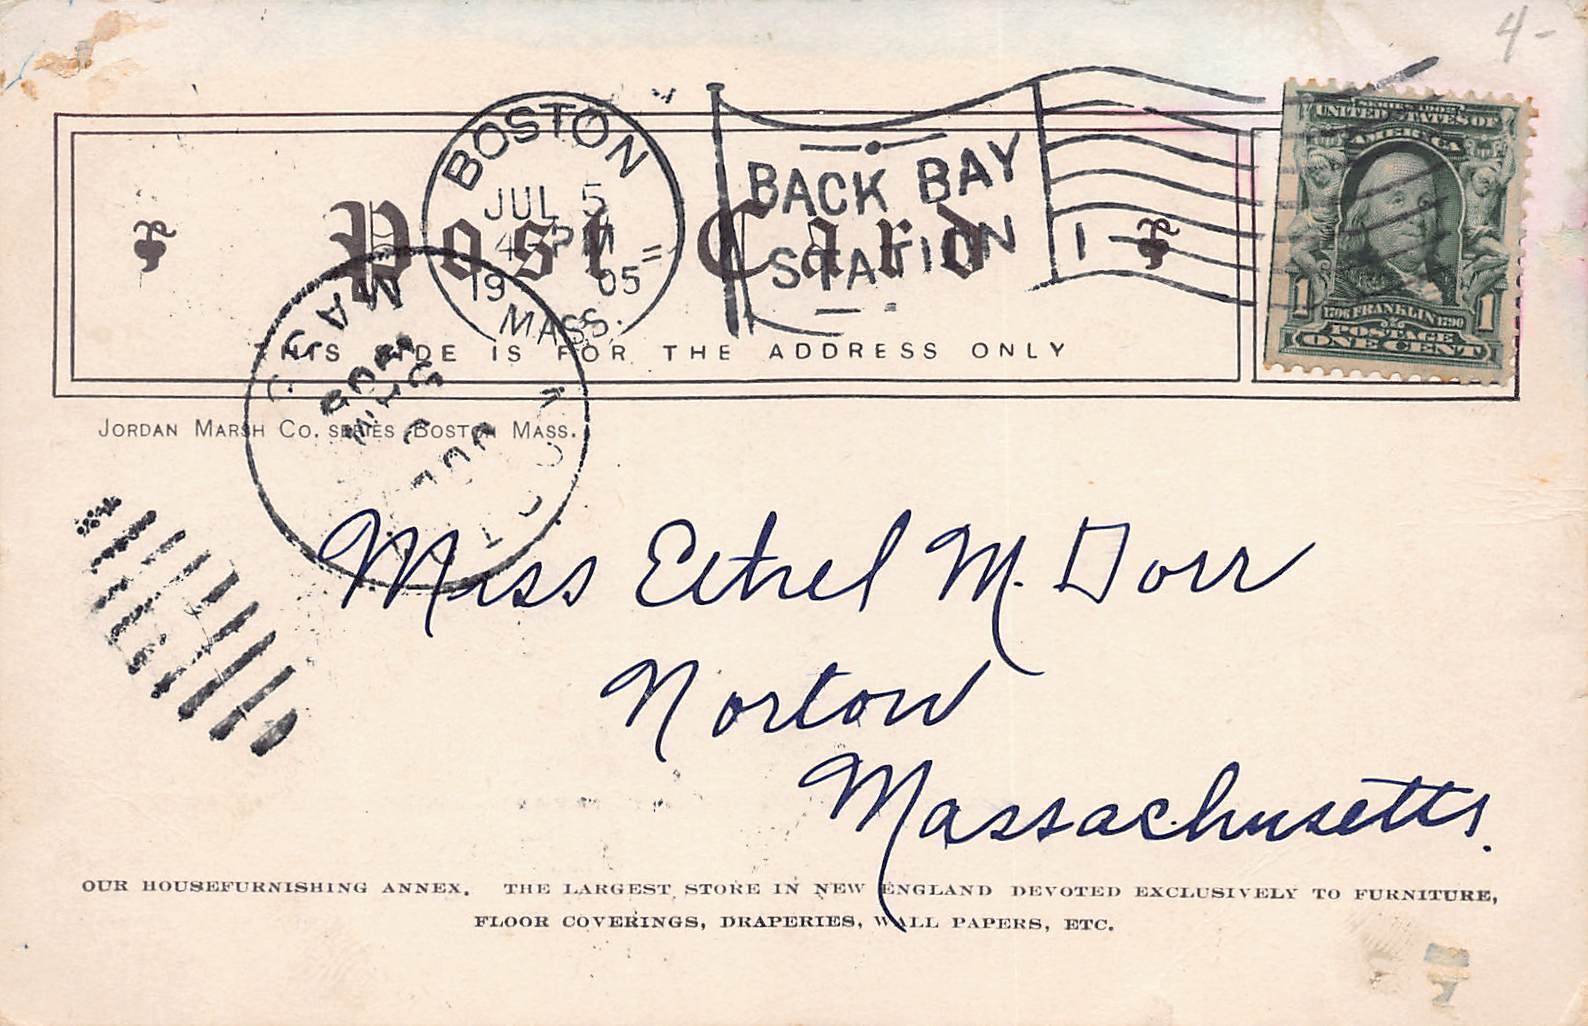 4-
BOSTON
JUL 5
4-PM
19 05
MASS.
BACK BAY
STATION
1
SERIES 1902
UNITED STATES OF
AMERICA
1 1
1706 FRANKLIN 1790
POSTAGE
ONE CENT
Post Card
THIS SIDE IS FOR THE ADDRESS ONLY
JORDAN MARSH CO. SERIES BOSTON MASS.
MASS
JUL
5
Miss Ethel M. Dorr
Norton
Massachusetts.
OUR HOUSEFURNISHING ANNEX. THE LARGEST STORE IN NEW ENGLAND DEVOTED EXCLUSIVELY TO FURNITURE,
FLOOR COVERINGS, DRAPERIES, WALL PAPERS, ETC.